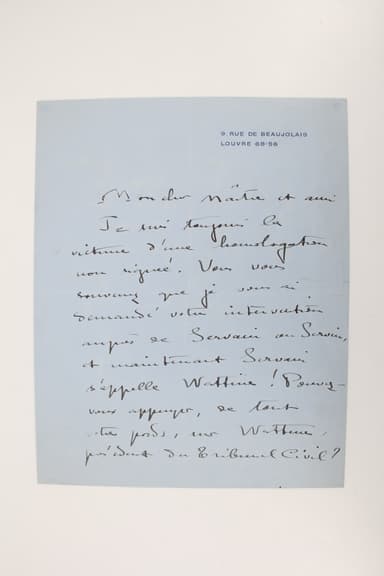 9. RUE DE BEAUJOLAIS
LOUVRE 68-56
Mon cher maître et ami
Je suis toujours la
victime d'une homologation
non signée. Vous vous
souvenez que je vous ai
demandé votre intervention
auprès de Servain ou Servin,
et maintenant Servain
s'appelle Wattine ! Pouvez-
vous appuyer, de tout
votre poids, sur Wattine,
président du Tribunal Civil ?